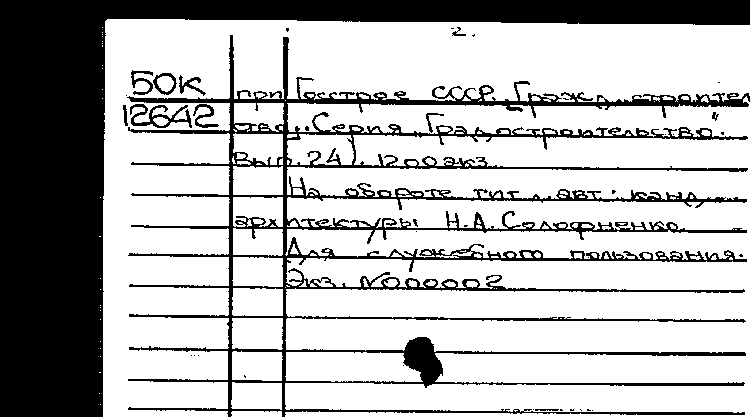 2.
50К
12642
при Госстрое СССР. „Гражд. строитель
ство". Серия „Градостроительство".
Вып. 24). 1200 экз.
На обороте тит. л. авт.: канд.
архитектуры Н.А. Солофненко.
Для служебного пользования.
Экз. N000002